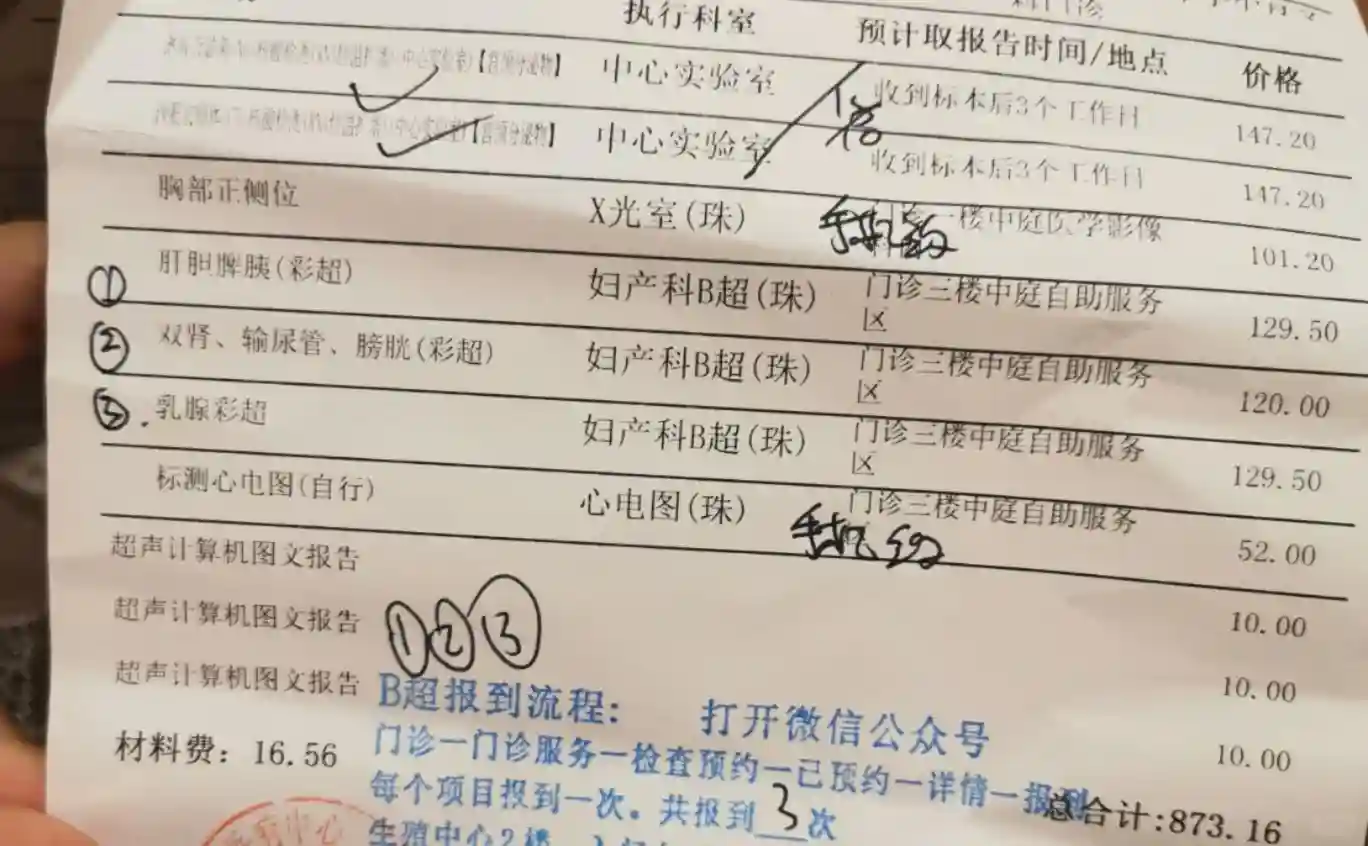 执行科室 预计取报告时间/地点 价格
【宫颈分泌物】 中心实验室 收到标本后3个工作日 147.20
【宫颈分泌物】 中心实验室 收到标本后3个工作日 147.20
胸部正侧位 X光室(珠) 门诊一楼中庭医学影像 101.20
手机
① 肝胆脾胰(彩超) 妇产科B超(珠) 门诊三楼中庭自助服务区 129.50
② 双肾、输尿管、膀胱(彩超) 妇产科B超(珠) 门诊三楼中庭自助服务区 120.00
③ 乳腺彩超 妇产科B超(珠) 门诊三楼中庭自助服务区 129.50
标测心电图(自行) 心电图(珠) 门诊三楼中庭自助服务 52.00
手机
超声计算机图文报告 10.00
超声计算机图文报告 10.00
①②③
超声计算机图文报告 10.00
B超报到流程: 打开微信公众号
材料费: 16.56
门诊一门诊服务一检查预约一已预约一详情一报到
每个项目报到一次。共报到3次
总合计:873.16
生殖中心2楼